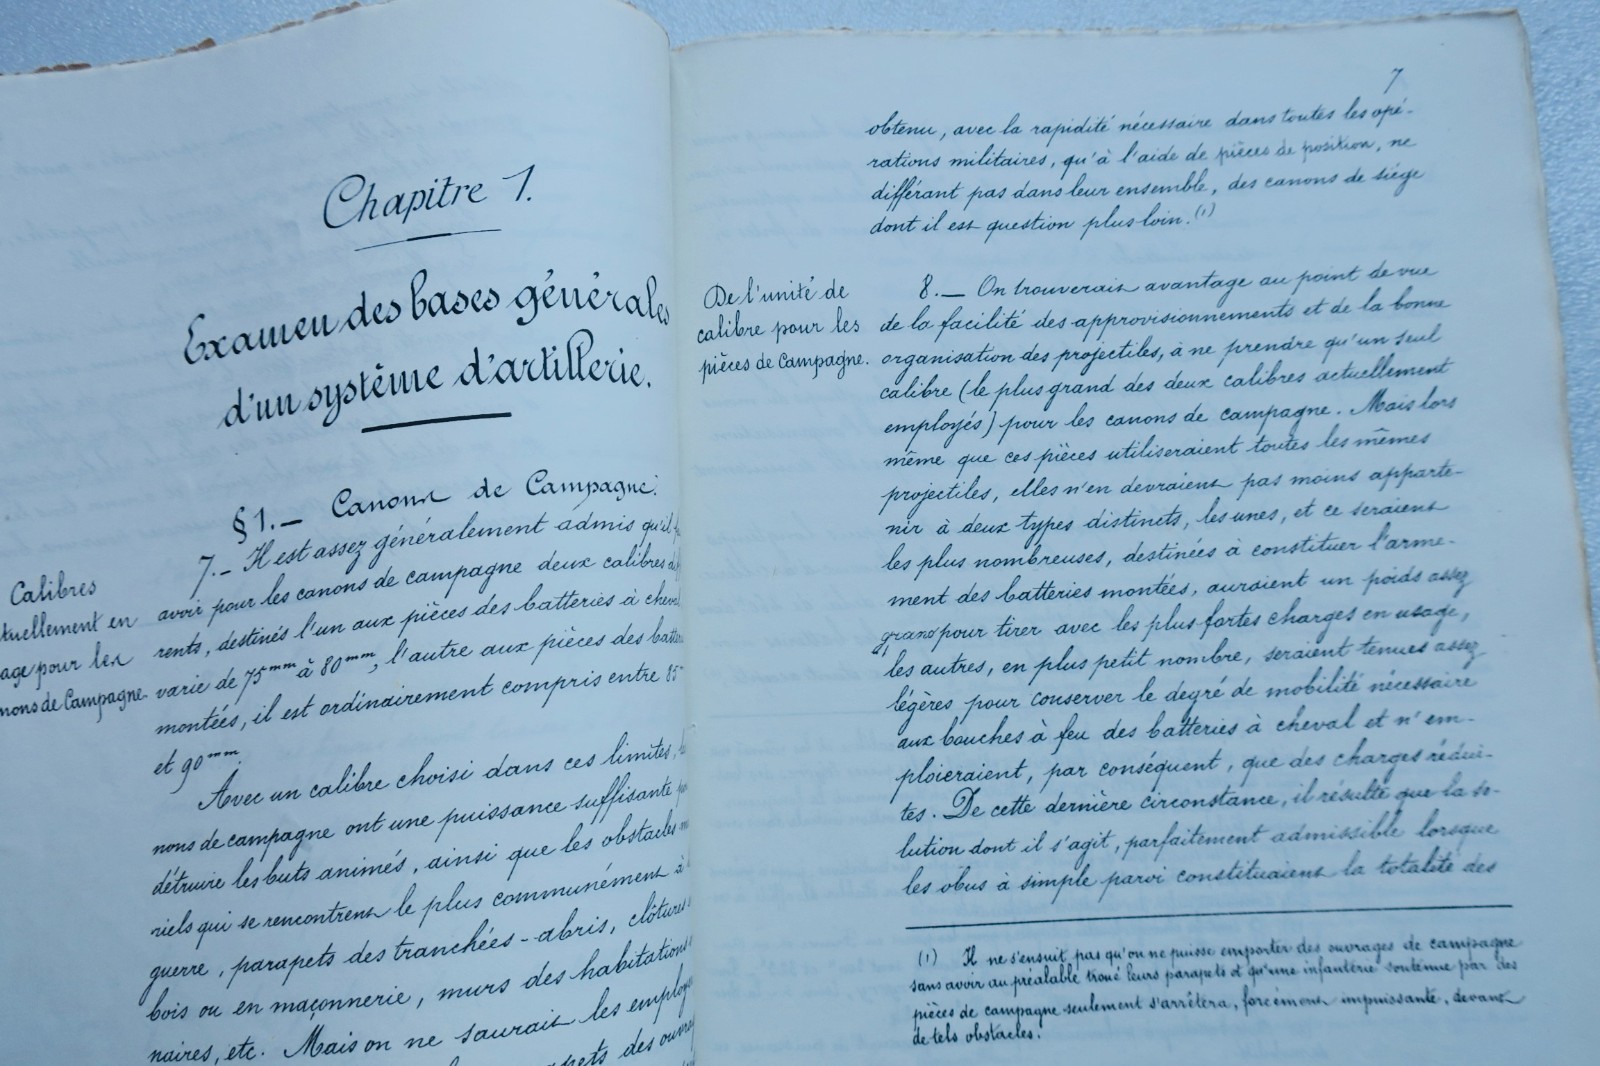 Chapitre 1.
Examen des bases générales
d'un système d'artillerie.
§ 1. — Canons de Campagne.
Calibres
tuellement en
age pour les
nons de Campagne
7. — Il est assez généralement admis qu'il
avoir pour les canons de campagne deux calibres
rents, destinés l'un aux pièces des batteries à cheval
varie de 75mm à 80mm, l'autre aux pièces des batte
montées, il est ordinairement compris entre 85
et 90mm.
Avec un calibre choisi dans ces limites,
nons de campagne ont une puissance suffisante
détruire les buts animés, ainsi que les obstacles
riels qui se rencontrent le plus communément à
guerre, parapets des tranchées-abris, clôtures
bois ou en maçonnerie, murs des habitations
naires, etc. Mais on ne saurait les employer
pets des ouvra
7
obtenu, avec la rapidité nécessaire dans toutes les opé-
rations militaires, qu'à l'aide de pièces de position, ne
différant pas dans leur ensemble, des canons de siége
dont il est question plus loin. (1)
De l'unité de
calibre pour les
pièces de Campagne.
8. — On trouverait avantage au point de vue
de la facilité des approvisionnements et de la bonne
organisation des projectiles, à ne prendre qu'un seul
calibre (le plus grand des deux calibres actuellement
employés) pour les canons de campagne. Mais lors
même que ces pièces utiliseraient toutes les mêmes
projectiles, elles n'en devraient pas moins apparte-
nir à deux types distincts, les unes, et ce seraient
les plus nombreuses, destinées à constituer l'arme-
ment des batteries montées, auraient un poids assez
grand pour tirer avec les plus fortes charges en usage,
les autres, en plus petit nombre, seraient tenues assez
légères pour conserver le degré de mobilité nécessaire
aux bouches à feu des batteries à cheval et n'em-
ploieraient, par conséquent, que des charges rédui-
tes. De cette dernière circonstance, il résulte que la so-
lution dont il s'agit, parfaitement admissible lorsque
les obus à simple paroi constituaient la totalité des
(1) Il ne s'ensuit pas qu'on ne puisse emporter des ouvrages de campagne
sans avoir au préalable troué leurs parapets et qu'une infanterie soutenue par des
pièces de campagne seulement s'arrêtera, forcément impuissante, devant
de tels obstacles.